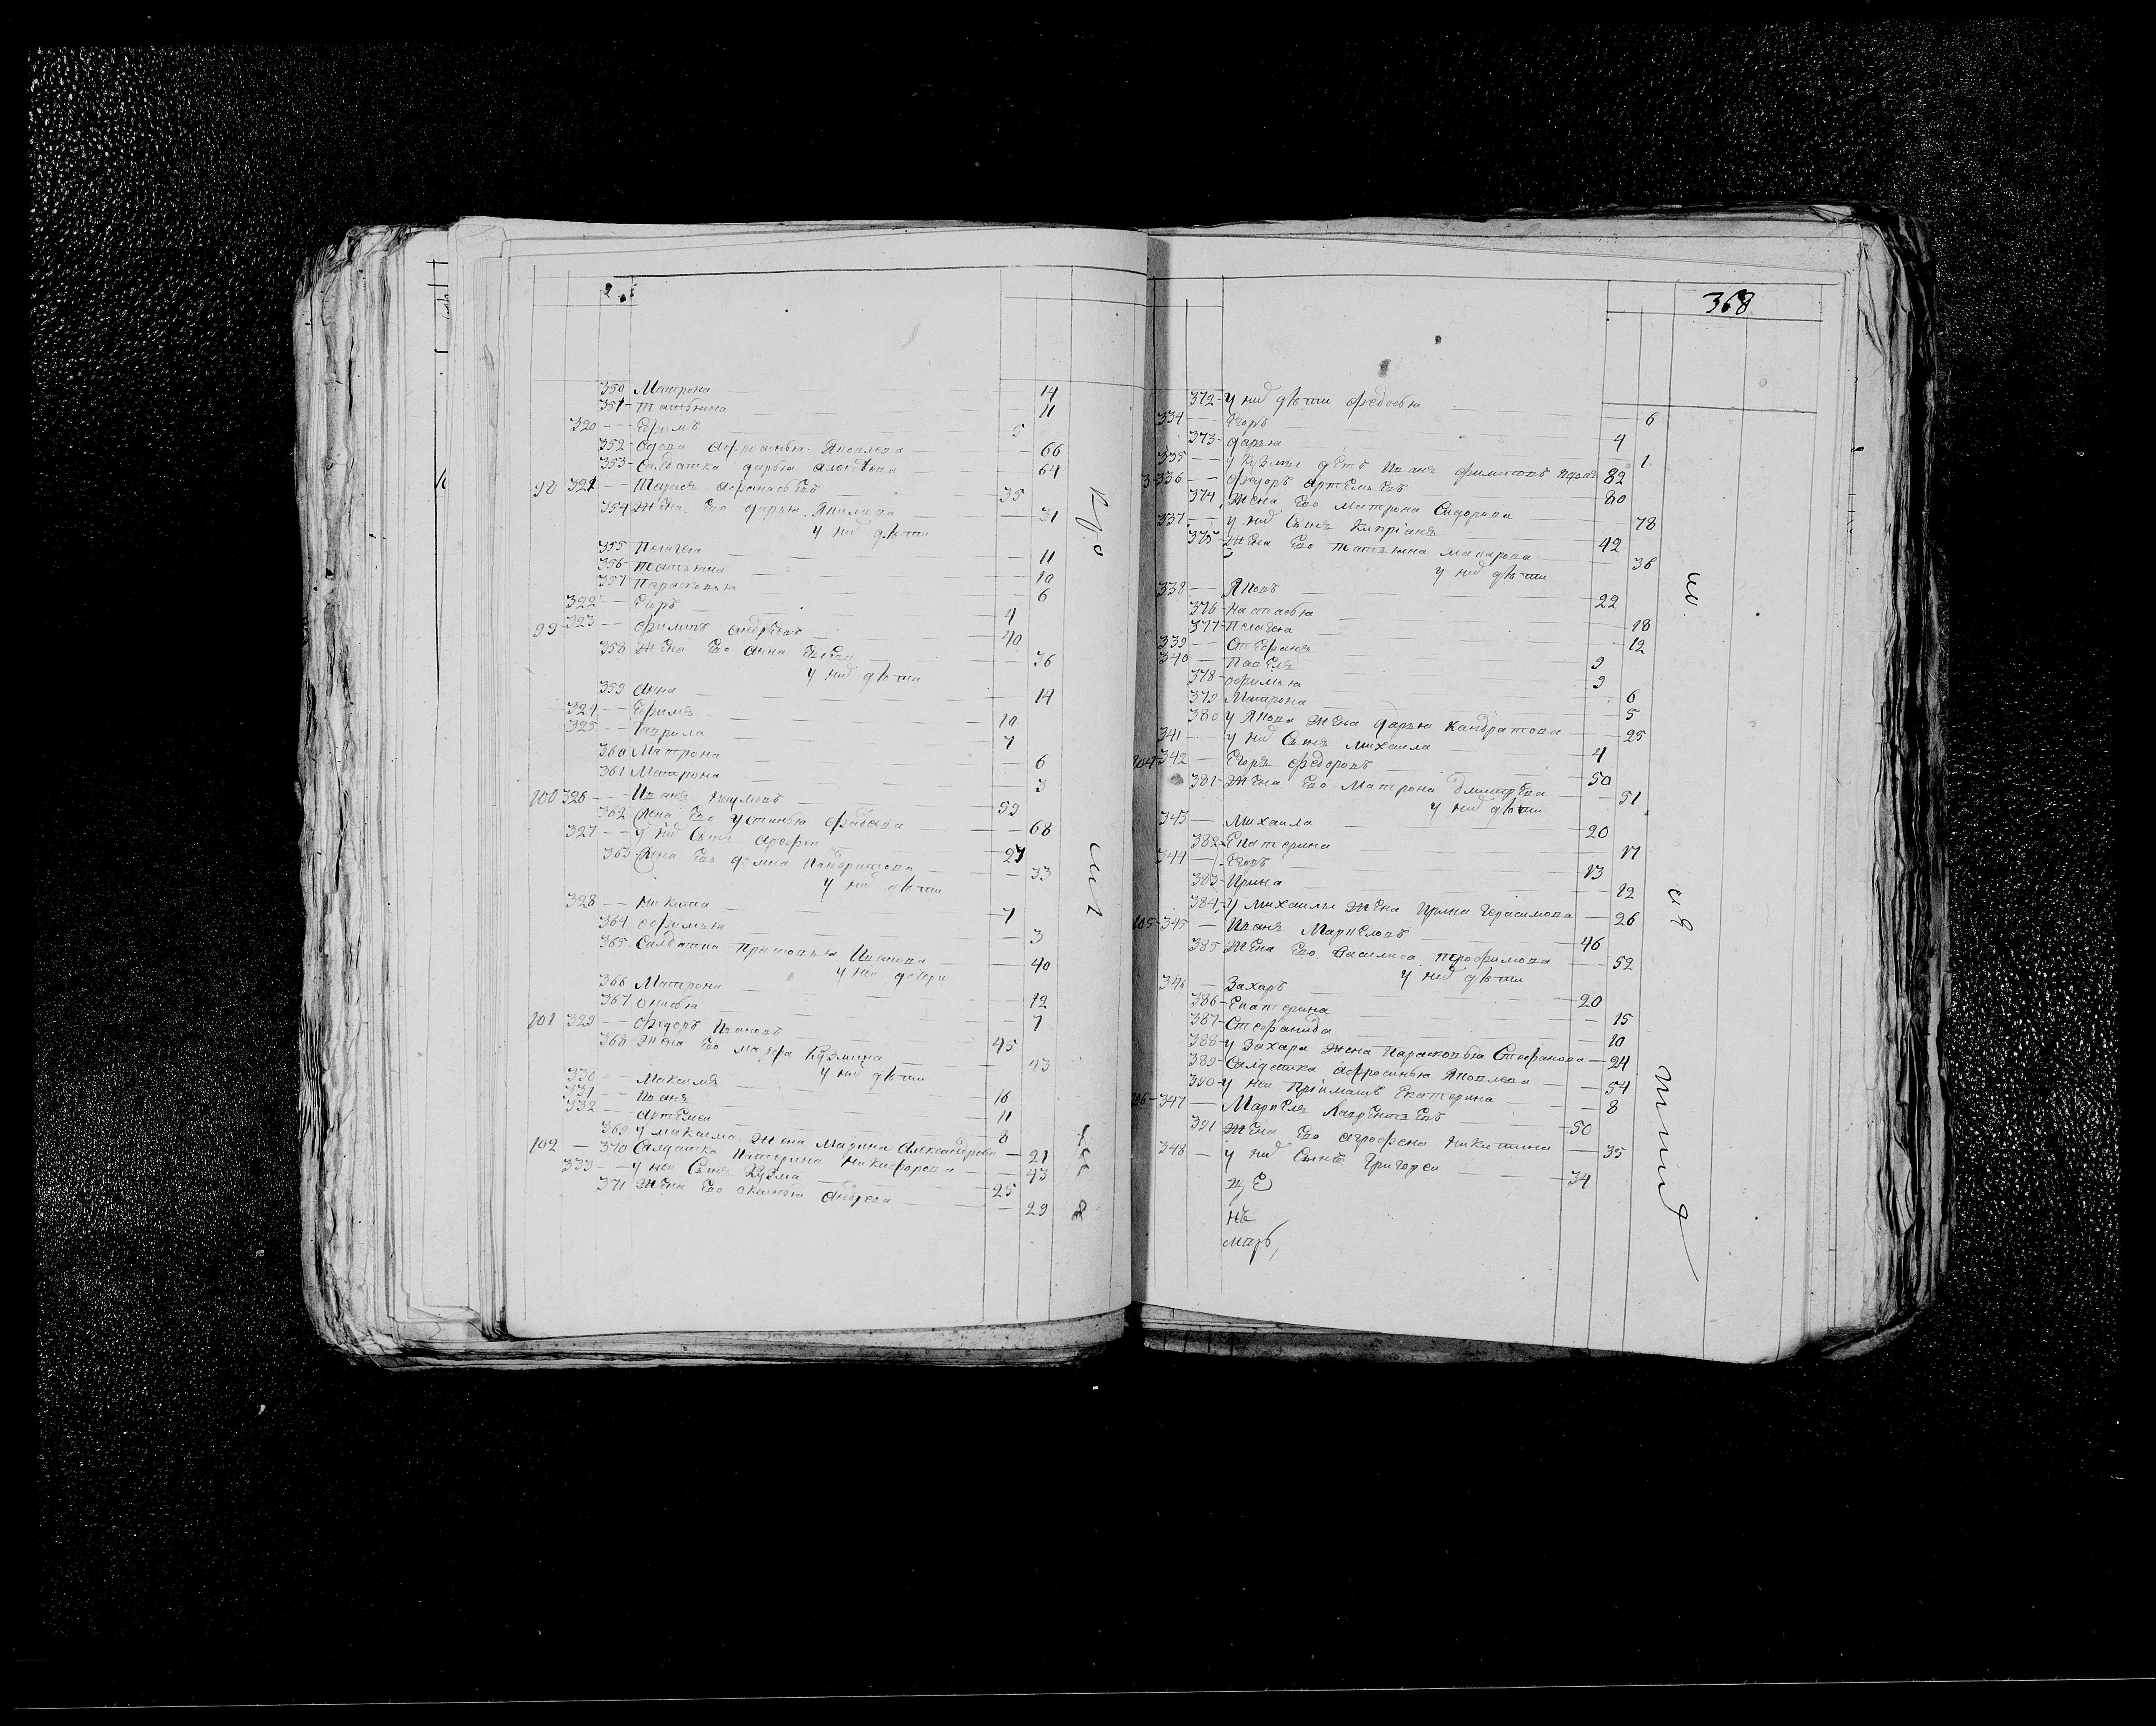 350 Матрона 14
351 Татьяна 11
320 Ефимъ 5
352 Вдова Афросинья Яковлева 66
353 Салдатка Дарья 64
98 321 Тарасъ Афонасьевъ 35
354 Жена Ево Дарья 31
у ниѵ дѣти
355 Пелагея 11
356 Татьяна 10
357 Парасковья 6
322 Егоръ 4
99 323 Филипъ Андреевъ 40
358 Жена Ево Анна 36
у них дѣти
359 Анна 14
324 Ефимъ 10
325 Гаврила 7
360 Матрона 6
361 Матрона 3
100 326 Иванъ Наумовъ 59
362 Жена Ево Устинья Фадеева 68
327 у них Сынъ Арефеи 27
363 Жена Ево Домна Кандратова 33
у них дѣти
328 Никита 7
364 Офимья 3
365 Салдатка Прасковья Иванова 40
у неи дочери
366 Матрона 12
367 Онисья 7
101 329 Федоръ Ивановъ 45
368 Жена Ево Марфа Кузмина 43
у них дѣти
330 Максимъ 16
331 Иванъ 11
332 Артемеи 8
369 у Максима Жена Марина Александрова 21
102 370 Салдатка Катерина Никифорова 43
333 у неи Сынъ Кузма 25
371 Жена Ево Оксинья Андреева 29
368
372 у них дѣти Федосья 6
334 Егоръ 4
373 Дарья 1
335 у Кузмы Филиповъ 82
3 336 Федоръ Артемьевъ 80
374 Жена Ево Матрона Сидорова 78
337 у них Сынъ Кипріанъ 42
375 Жена Ево Татьяна Макарова 38
у них дѣти
338 Яковъ 22
376 Настасья 18
377 Пелагея 12
339 Стефанъ 9
340 Павелъ 9
378 Офимья 6
379 Матрона 5
380 у Якова Жена Дарья Кандратова 25
341 у них Сынъ Михаила 4
104 342 Егоръ Федоровъ 50
381 Жена Ево Матрона Дмитрева 51
у них дѣти
343 Михаила 20
382 Екатерина 17
344 Егоръ 13
383 Ирина 12
384 у Михаилы Жена Ирина Герасимова 26
105 345 Иванъ Маркеловъ 46
385 Жена Ево Василиса Трофимова 52
у них дѣти
346 Захаръ 20
386 Екатерина 15
387 Стефанида 10
388 у Захара Жена Парасковья Стефанова 24
389 Салдатка Афросинья Яковлева 54
390 у неи Пріимашъ Екатерина 8
106 347 Маркелъ Лаврентьевъ 50
391 Жена Ево Агрофена Никитина 35
348 у них Сынъ Григореи 34